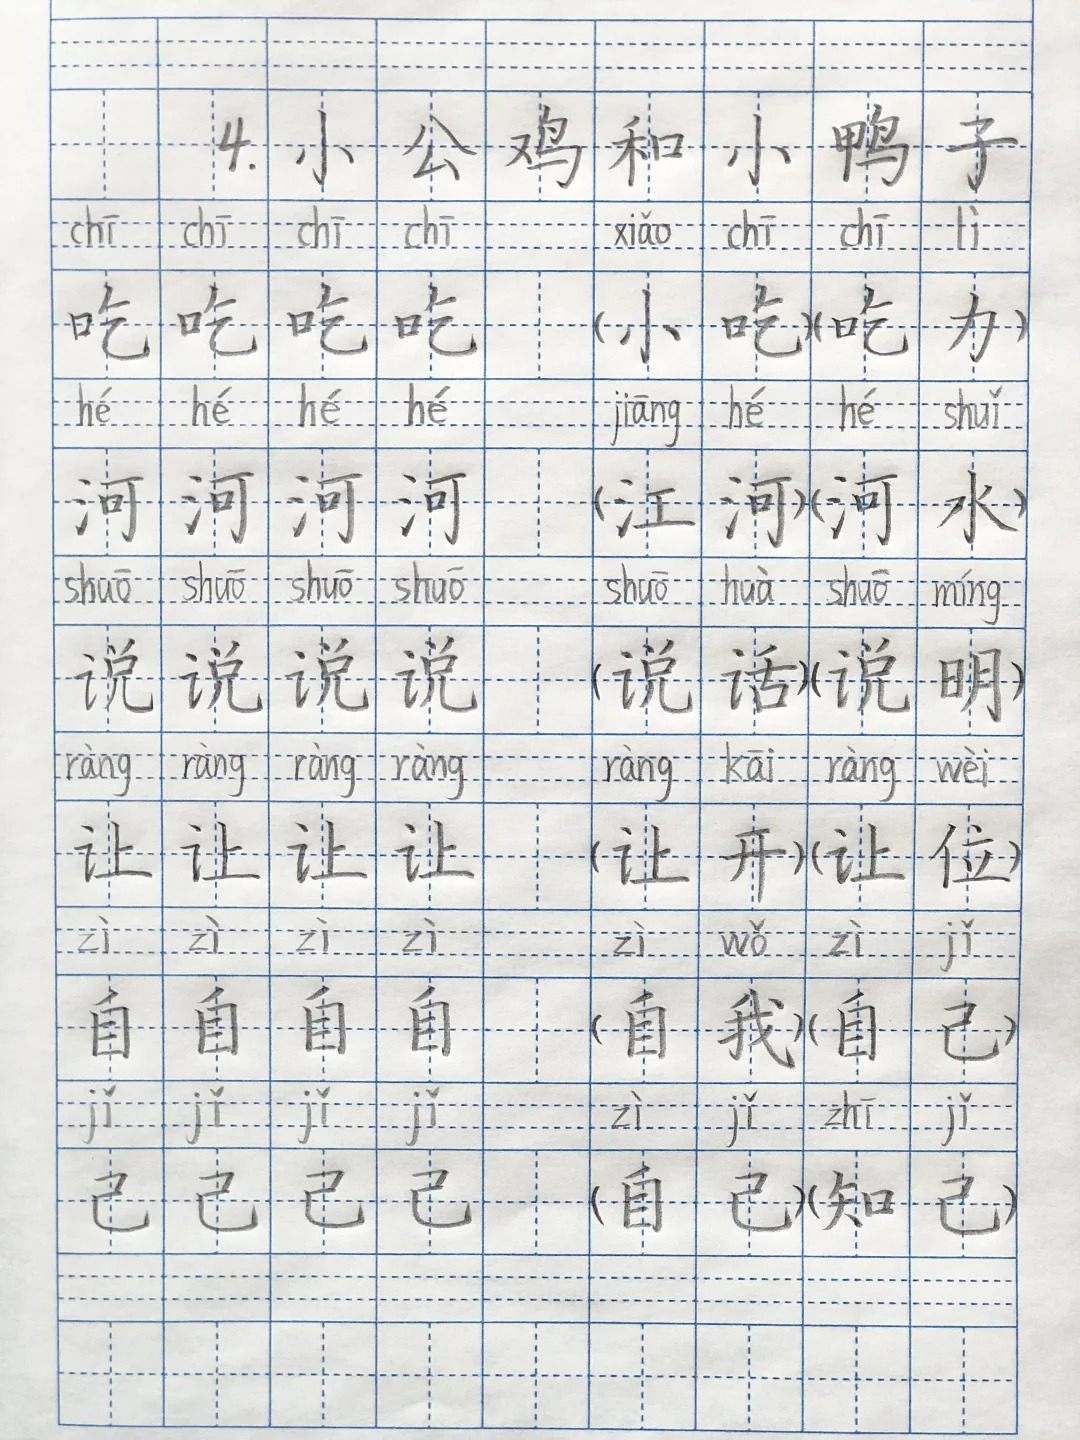 4.小公鸡和小鸭子
chī chī chī chī xiǎo chī chī lì
吃 吃 吃 吃 (小吃)(吃力)
hé hé hé hé jiāng hé hé shuǐ
河 河 河 河 (江河)(河水)
shuō shuō shuō shuō shuō huà shuō míng
说 说 说 说 (说话)(说明)
ràng ràng ràng ràng ràng kāi ràng wèi
让 让 让 让 (让开)(让位)
zì zì zì zì zì wǒ zì jǐ
自 自 自 自 (自我)(自己)
jǐ jǐ jǐ jǐ zì jǐ zhī jǐ
己 己 己 己 (自己)(知己)